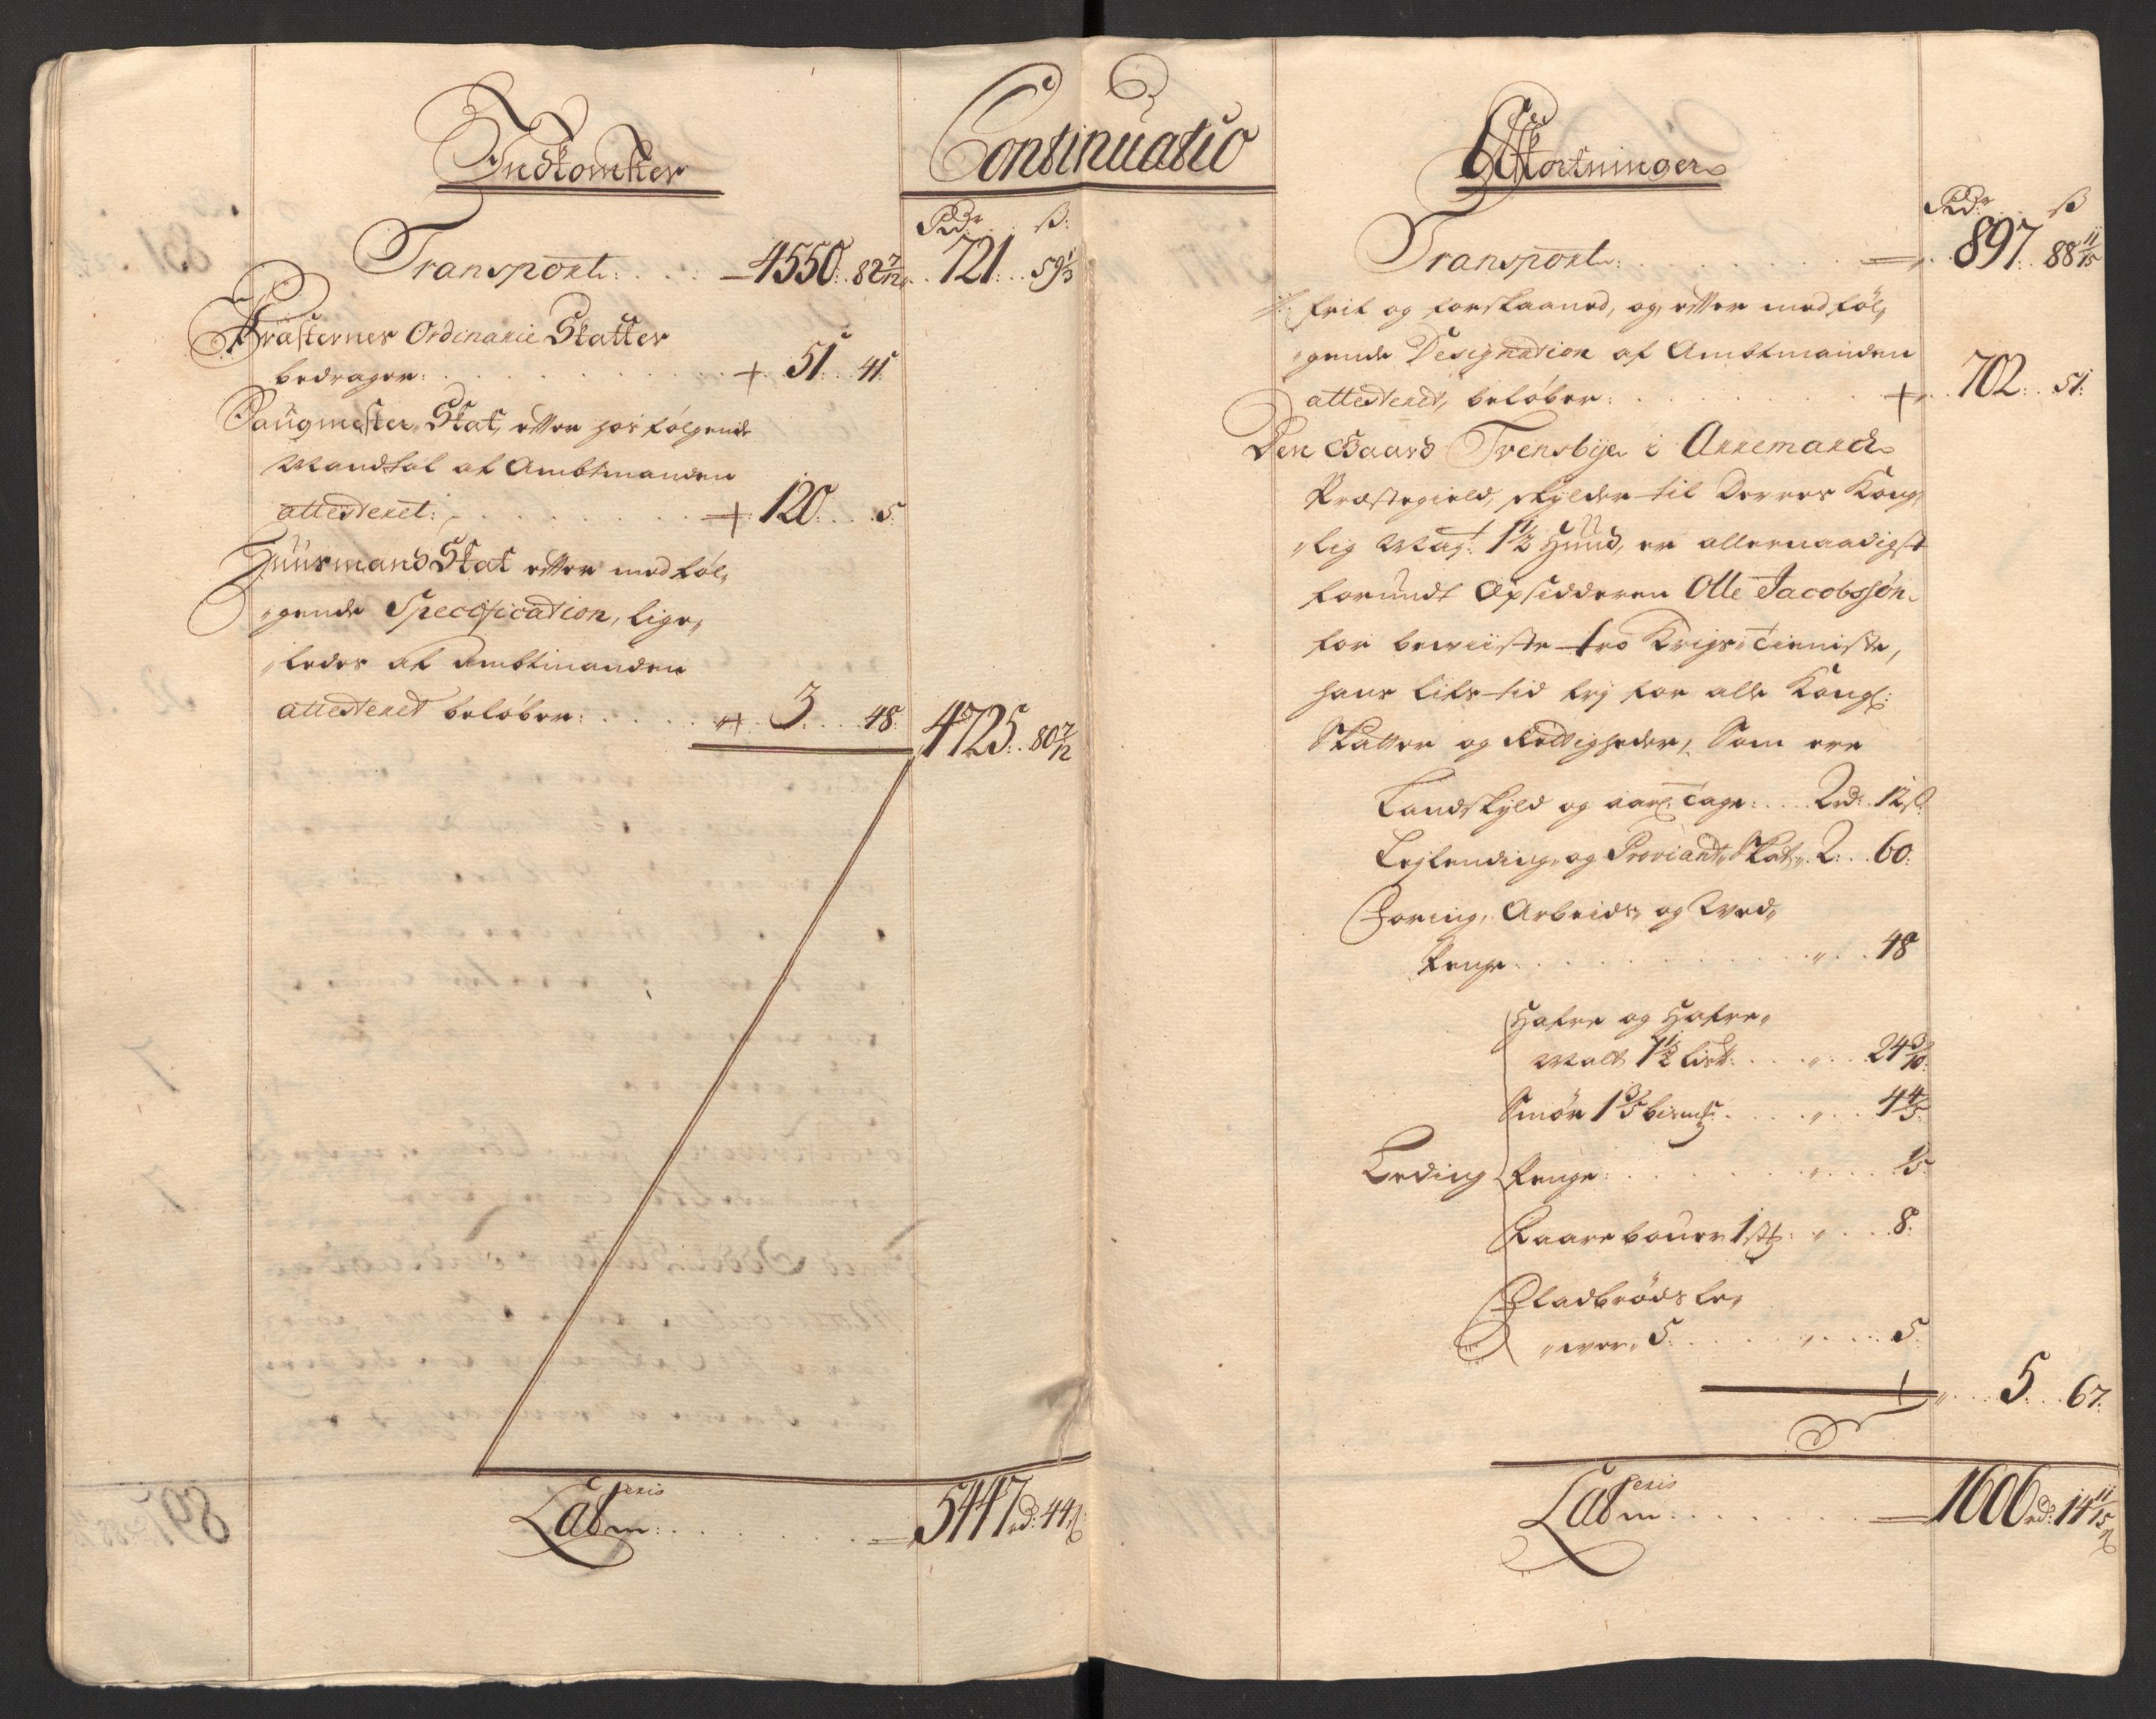 Indkomster
Continuatio
Rdr ß:
Transport: 4550: 82 7/12 721: 59 1/3
Præsternes Ordinarie Skatter
bedrager: + 51: 41
Saugmester Skat, efter hos følgende
Mandtal af Ambtmanden
attesteret: + 120: 5:
Huusmand Skat efter medføl„
„gende Specification, lige„
„ledes af Ambtmanden
attesteret beløber: + 3: 48: 4725: 80 7/12
Lateris
m: 5447 rd: 44 ß
Afkortninger
Rdr ß
Transport: 897: 88 11/15
frit og forskaaned, og efter medføl„
„gende Designation af Ambtmanden
attesteret, beløber: + 702: 51:
Den Gaard Trensbye i Arremarck
Præstegield, skylder til Deres Kong„
„lig May: 1 1/2 Hund, er allernaadigst
forundt Opsidderen Olle Jacobssøn
for beviiste tro Krigs„Tieniste,
hans lifs tid frj for alle Kongl:
Skatter og Rettigheder, Som ere
Landskyld og aarl: Tage: 2 rd: 12 ß:
Leylending„ og Proviant„Skat„ 2: 60:
Foring, Arbeids„ og Ved„
Penge „ 48
Hafre og Hafre„
Malt 1 1/2 Lisp: „ 24 3/10:
Smør 1 3/5 bismk: „ 4 4/5:
Leding Penge: „ 1/5
Kaarebouer 1 stk: „ 8:
Fladbrøds Le„
„wer„ 5: „ 5
5: 67:
Lateris
m: 1606 rd: 14 11/15 ß